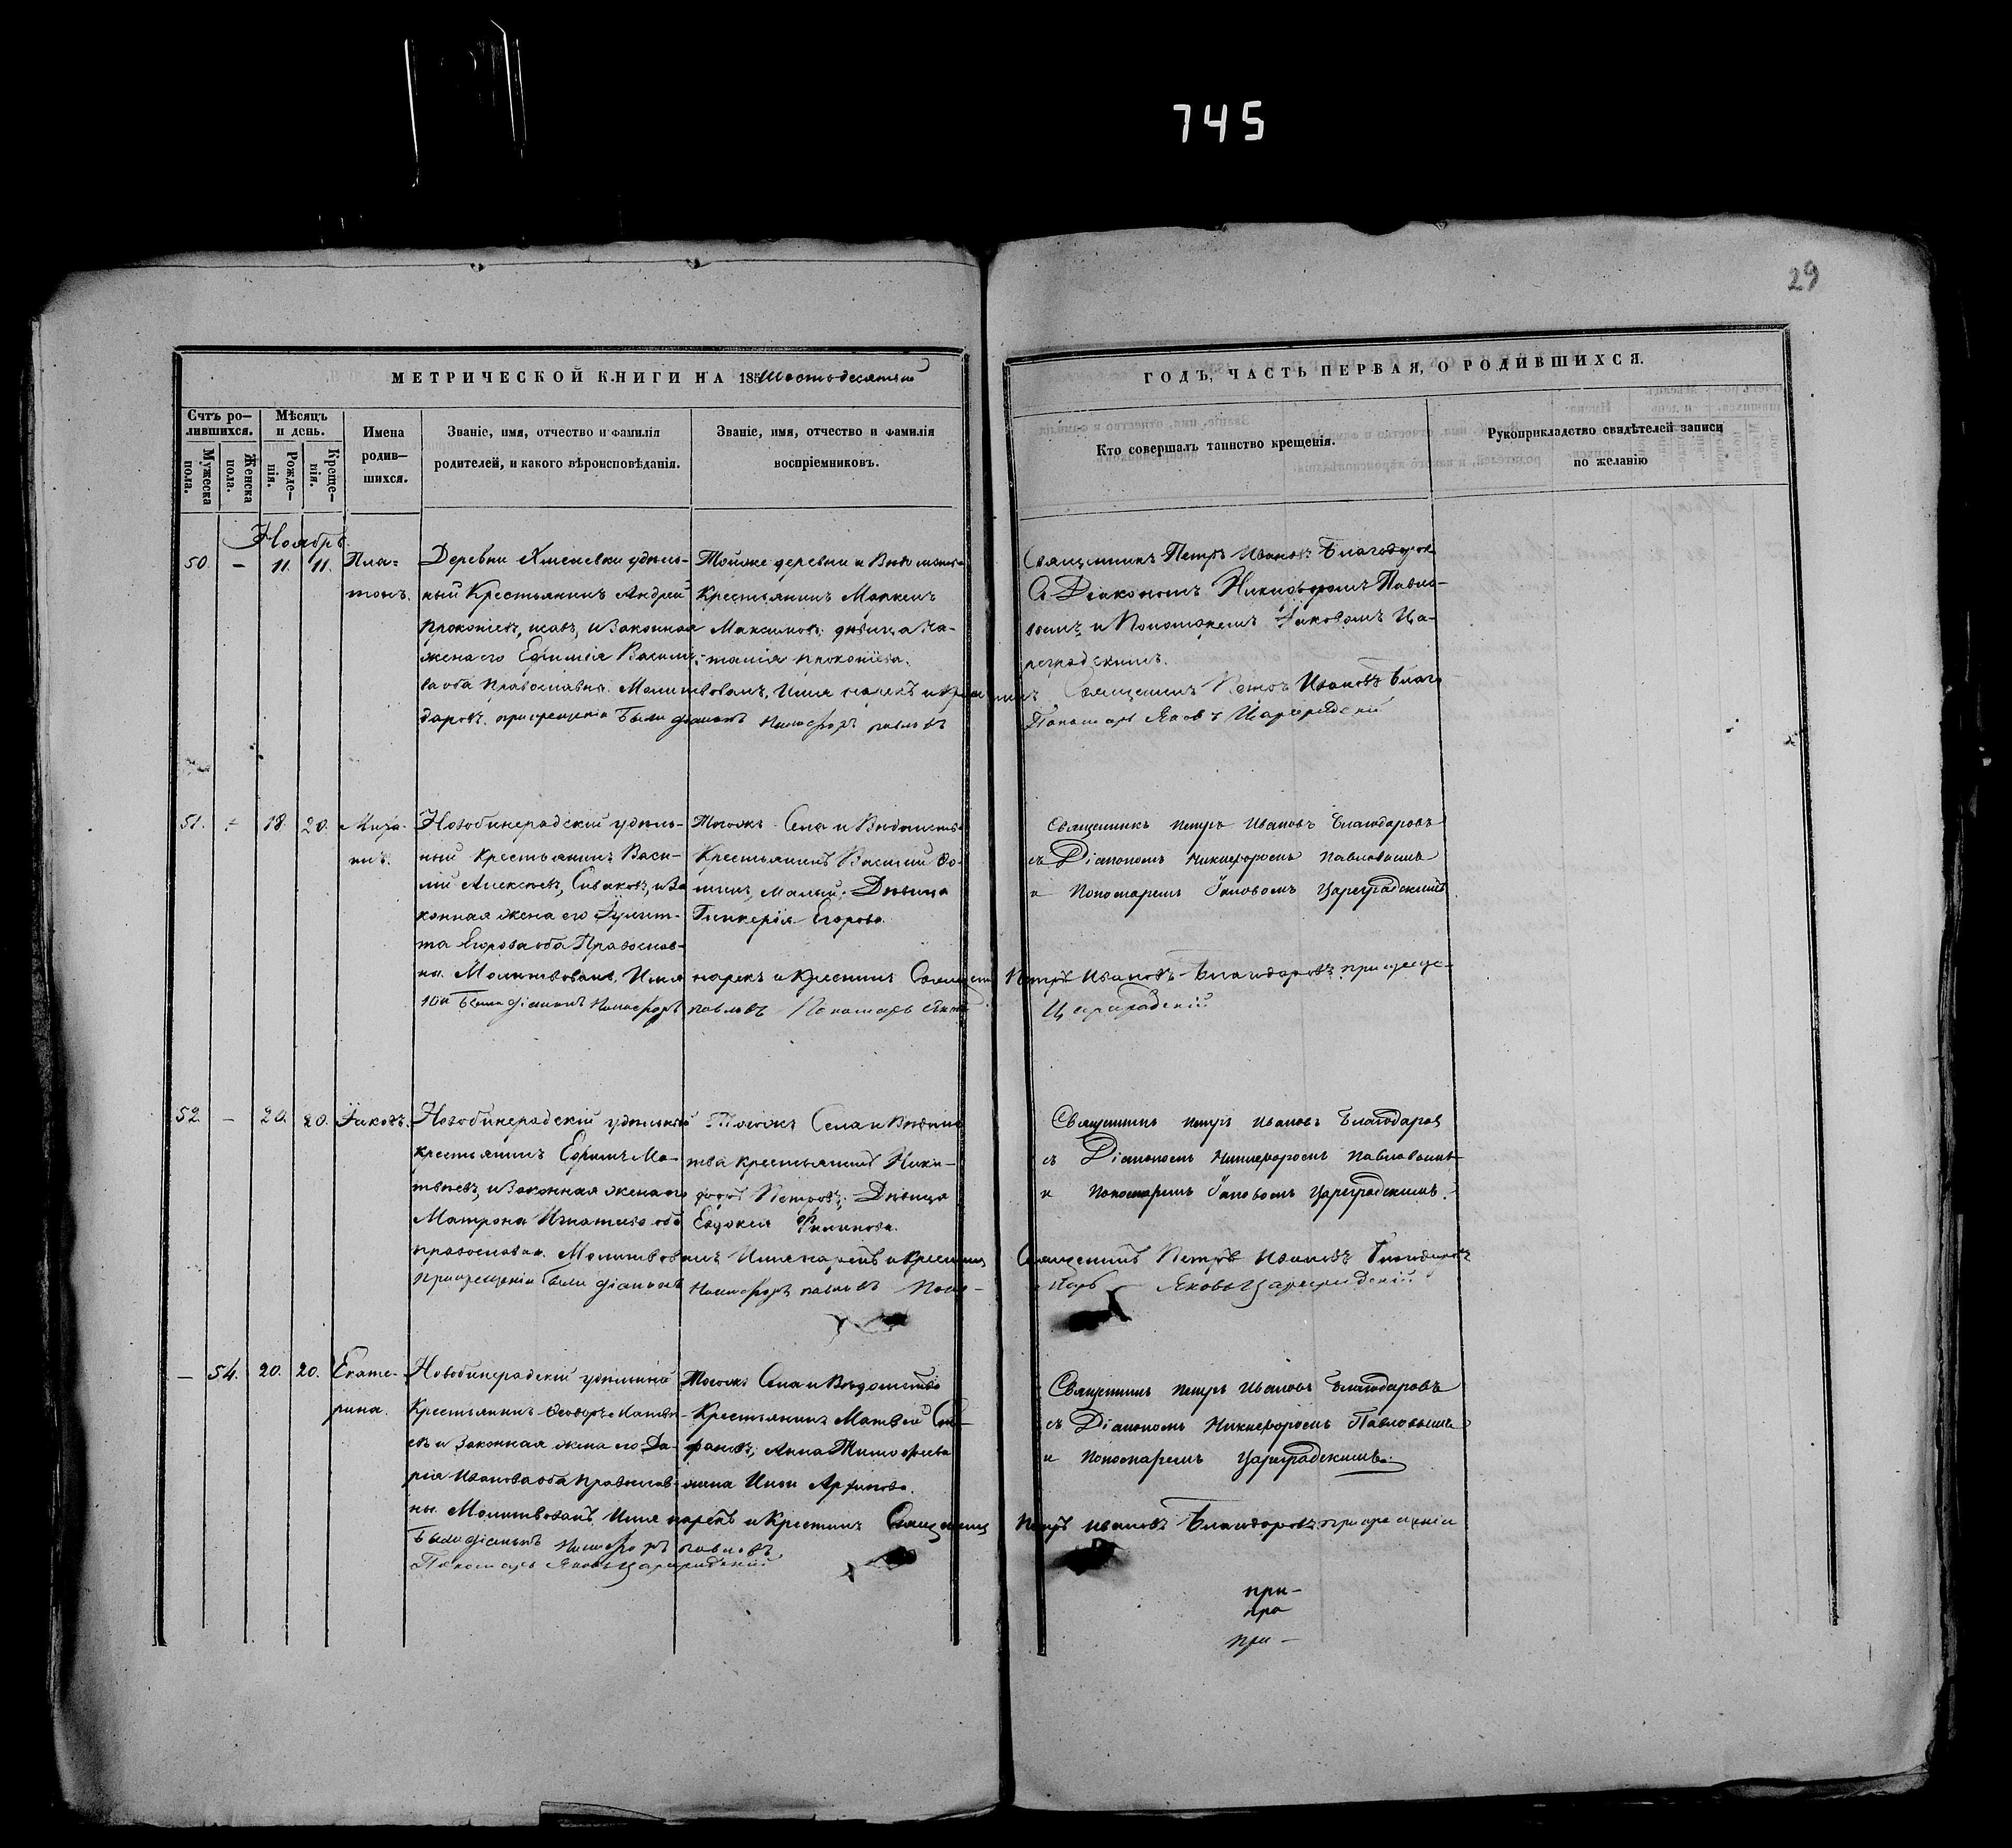 745
29
МЕТРИЧЕСКОЙ КНИГИ НА 185 Шестьдесятый
ГОДЪ, ЧАСТЬ ПЕРВАЯ, О РОДИВШИХСЯ.
Счтъ ро-
дившихся.
Мужеска
пола.
Женска
пола.
Мѣсяцъ
и день.
Рожде-
нія.
Креще-
нія.
Имена
родив-
шихся.
Званіе, имя, отчество и фамилія
родителей, и какого вѣроисповѣданія.
Званіе, имя, отчество и фамилія
воспріемниковъ.
Кто совершалъ таинство крещенія.
Рукоприкладство свидѣтелей записи
по желанію
Ноябрь
50. – 11. 11. Пла=
тонъ.
Деревни удѣль-
ный Крестьянинъ Андрей
Прокопіевъ, и Законная
жена его Ефимія Василь-
ва оба Православны. Молитвовалъ, Имя нарекъ и крестилъ Священникъ Петръ Ивановъ Благо
даровъ. при крещеніи были діаконъ Никифоръ Павловъ
Пономарь Яковъ Цареградскій
Тойже деревни и Вѣдомства
Крестьянинъ
Максимовъ; дѣвица На-
талія Прокопіева.
Священникъ Петръ Ивановъ Благодаров
съ Діакономъ Никифоромъ Павло-
вымъ и Пономаремъ Іаковомъ Ца-
реградскимъ.
51. – 18. 20. Миха-
илъ.
Новобинерадскій удѣль-
ный Крестьянинъ Васи-
лій Алексѣевъ, Сиваковъ, и За
конная жена его Іулит-
та Егорова оба Православ-
ны. Молитвовалъ, Имя нарекъ и Крестилъ Священ Петръ Ивановъ Благодаровъ при креще-
ніи были діаконъ Никифоръ Павловъ Пономарь Яковъ Цареградскій
Тогожъ Села и Вѣдомства
Крестьянинъ Василій Ѳо-
минъ, Малый; Дѣвица
Гликерія Егорова.
Священникъ Петръ Ивановъ Благодаровъ
съ Діакономъ Никифоромъ Павловымъ
и Пономаремъ Іаковомъ Цареградскимъ
52. – 20. 20. Іаковъ.
Новобинерадскій удѣльный
крестьянинъ Ефимъ Ма-
твѣевъ, и Законная жена его
Матрона Игнатьева оба
православны. Молитвовалъ Имя нарекъ и крестилъ Священникъ Петръ Ивановъ Благодаровъ
При крещеніи были діаконъ Никифоръ Павловъ Поно-
марь Яковъ Цареградскій
Тогожъ Села и Вѣдомс
тва крестьянинъ Ники-
форъ Петровъ; Дѣвица
Евдокія Филипова.
Священникъ Петръ Ивановъ Благодаров
съ Діакономъ Никифоромъ Павловымъ
и Пономаремъ Іаковомъ Цареградскимъ.
– 54. 20. 20. Екате-
рина.
Новобинерадскій удѣльный
Крестьянинъ Ѳеодоръ Матвѣ-
евъ и Законная жена его Да-
рія Иванова оба Православ-
ны. Молитвовалъ Имя нарекъ и Крестилъ Священникъ Петръ Ивановъ Благодаровъ при крещеніи
были діаконъ Никифоръ Павловъ
Пономарь Яковъ Цареградскій
Тогожъ Села и Вѣдомства
Крестьянинъ Матвей
Анна Тимофеева
жена Архипова.
Священникъ Петръ Ивановъ Благодаровъ
съ Діакономъ Никифоромъ Павловымъ
и Пономаремъ Цареградскимъ.
при-
при
при –